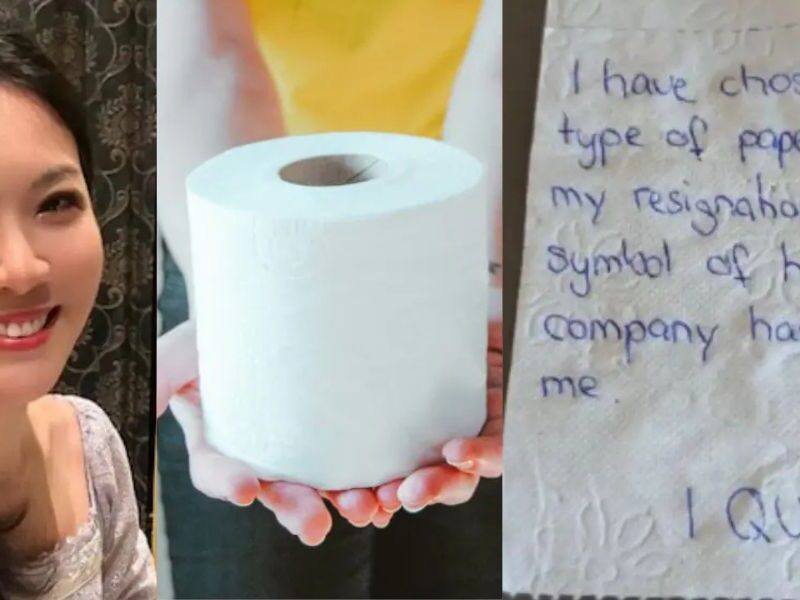 I have chos
type of pape
my resignatio
symbol of h
company ha
me.
I QU